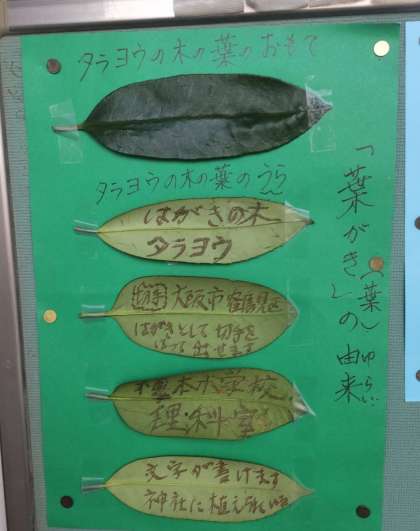 タラヨウの木の葉のおもて
タラヨウの木の葉のうら
はがきの木
タラヨウ
切手 大阪市鶴見区
はがきとして切手を
はって出せます
榎本小学校
理科室
文字が書けます
神社に植えられ
「葉がき」の由来
(葉)
ゆらい